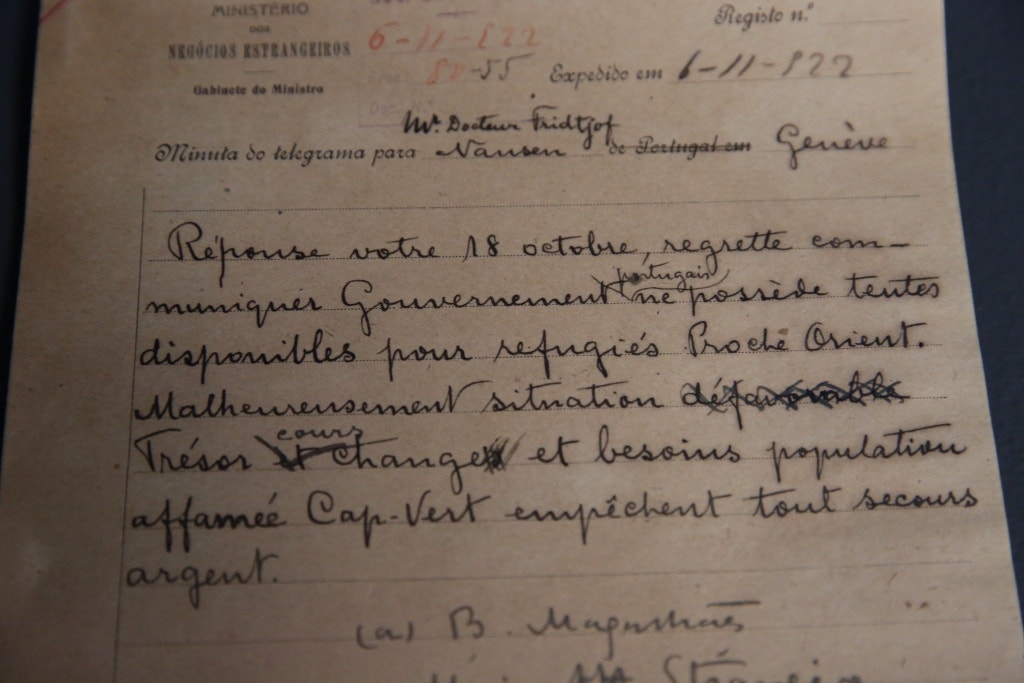 MINISTÉRIO
DOS
NEGÓCIOS ESTRANGEIROS
Gabinete do Ministro
6-11-922
80-55
Registo n.º
Expedido em 6-11-922
Mr. Docteur Fridtjof
Minuta do telegrama para Nansen de Portugal em Genève
Réponse votre 18 octobre, regrette com-
muniquer Gouvernement portugais ne possède tentes
disponibles pour refugiés Proche Orient.
Malheureusement situation défavorable
Trésor et cours change et besoins population
affameé Cap-Vert empêchent tout secours
argent.
(a) B. Magalhães